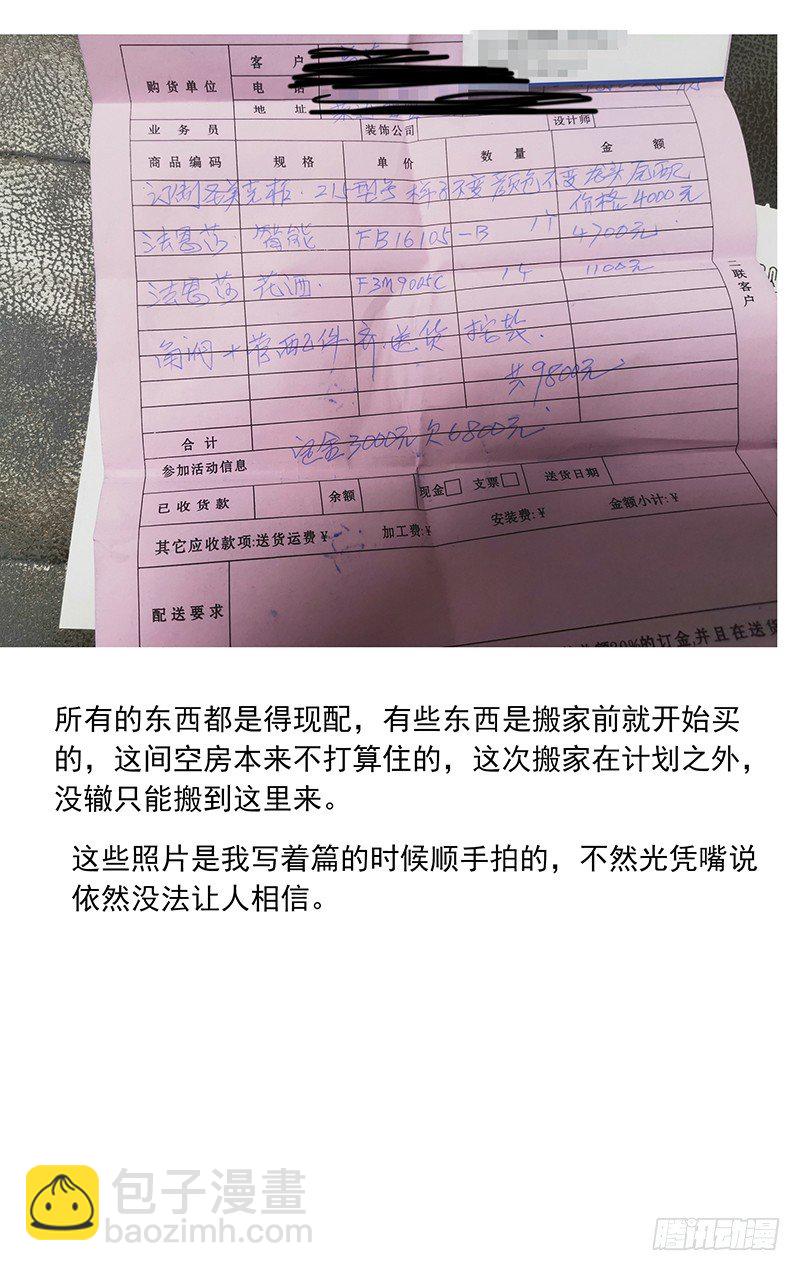 客 户
购货单位
电 话
地 址
业 务 员
装饰公司
设计师
商品编码 规 格 单 价 数 量 金 额
订制 柜. 215型号 样子不变 颜色不变 龙头 配
价格 4000元
法恩莎 智能 FB16105-B 1个 4700元
法恩莎 花洒. F3M9005C 1个 1100元
二联客户
角阀+ 管 配件齐 送货 按装.
共9800元
合 计
定金3000元 欠6800元.
参加活动信息
已收货款 余额 现金□ 支票□ 送货日期
其它应收款项:送货运费¥ 加工费:¥ 安装费:¥ 金额小计:¥
配送要求
额30%的订金,并且在送货
所有的东西都是得现配，有些东西是搬家前就开始买
的，这间空房本来不打算住的，这次搬家在计划之外，
没辙只能搬到这里来。
这些照片是我写着篇的时候顺手拍的，不然光凭嘴说
依然没法让人相信。
包子漫畫
baozimh.com
腾讯动漫